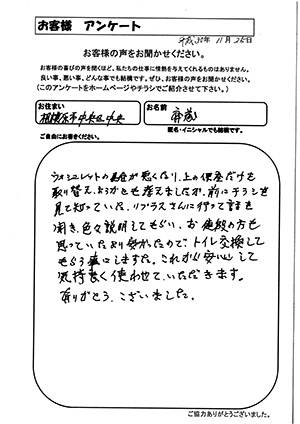 お客様 アンケート
平成30年 11月 25日
お客様の声をお聞かせください。
お客様の喜びの声を聞くほど、私たちの仕事に情熱を与えてくれるものはありません。
良い事、悪い事、どんな事でも結構です。ぜひ、お客様の声をお聞かせください。
(このアンケートをホームページやチラシでご紹介させて下さい。)
お住まい
お名前
相模原市中央区中央
斉藤
匿名・イニシャルでも結構です。
ご自由にお書きください。
ウォシュレットの具合が悪くなり、上の便座だけを
取り替え、ようかとも考えましたが、前にチラシを
見て知っていた、リプラスさんに行って話を
聞き、色々説明してもらい、お値段の方も
思っていたより安かったので、トイレ交換して
もらう事にしました。これから安心して
気持良く使わせていただきます。
ありがとうございました。
ご協力ありがとうございました。